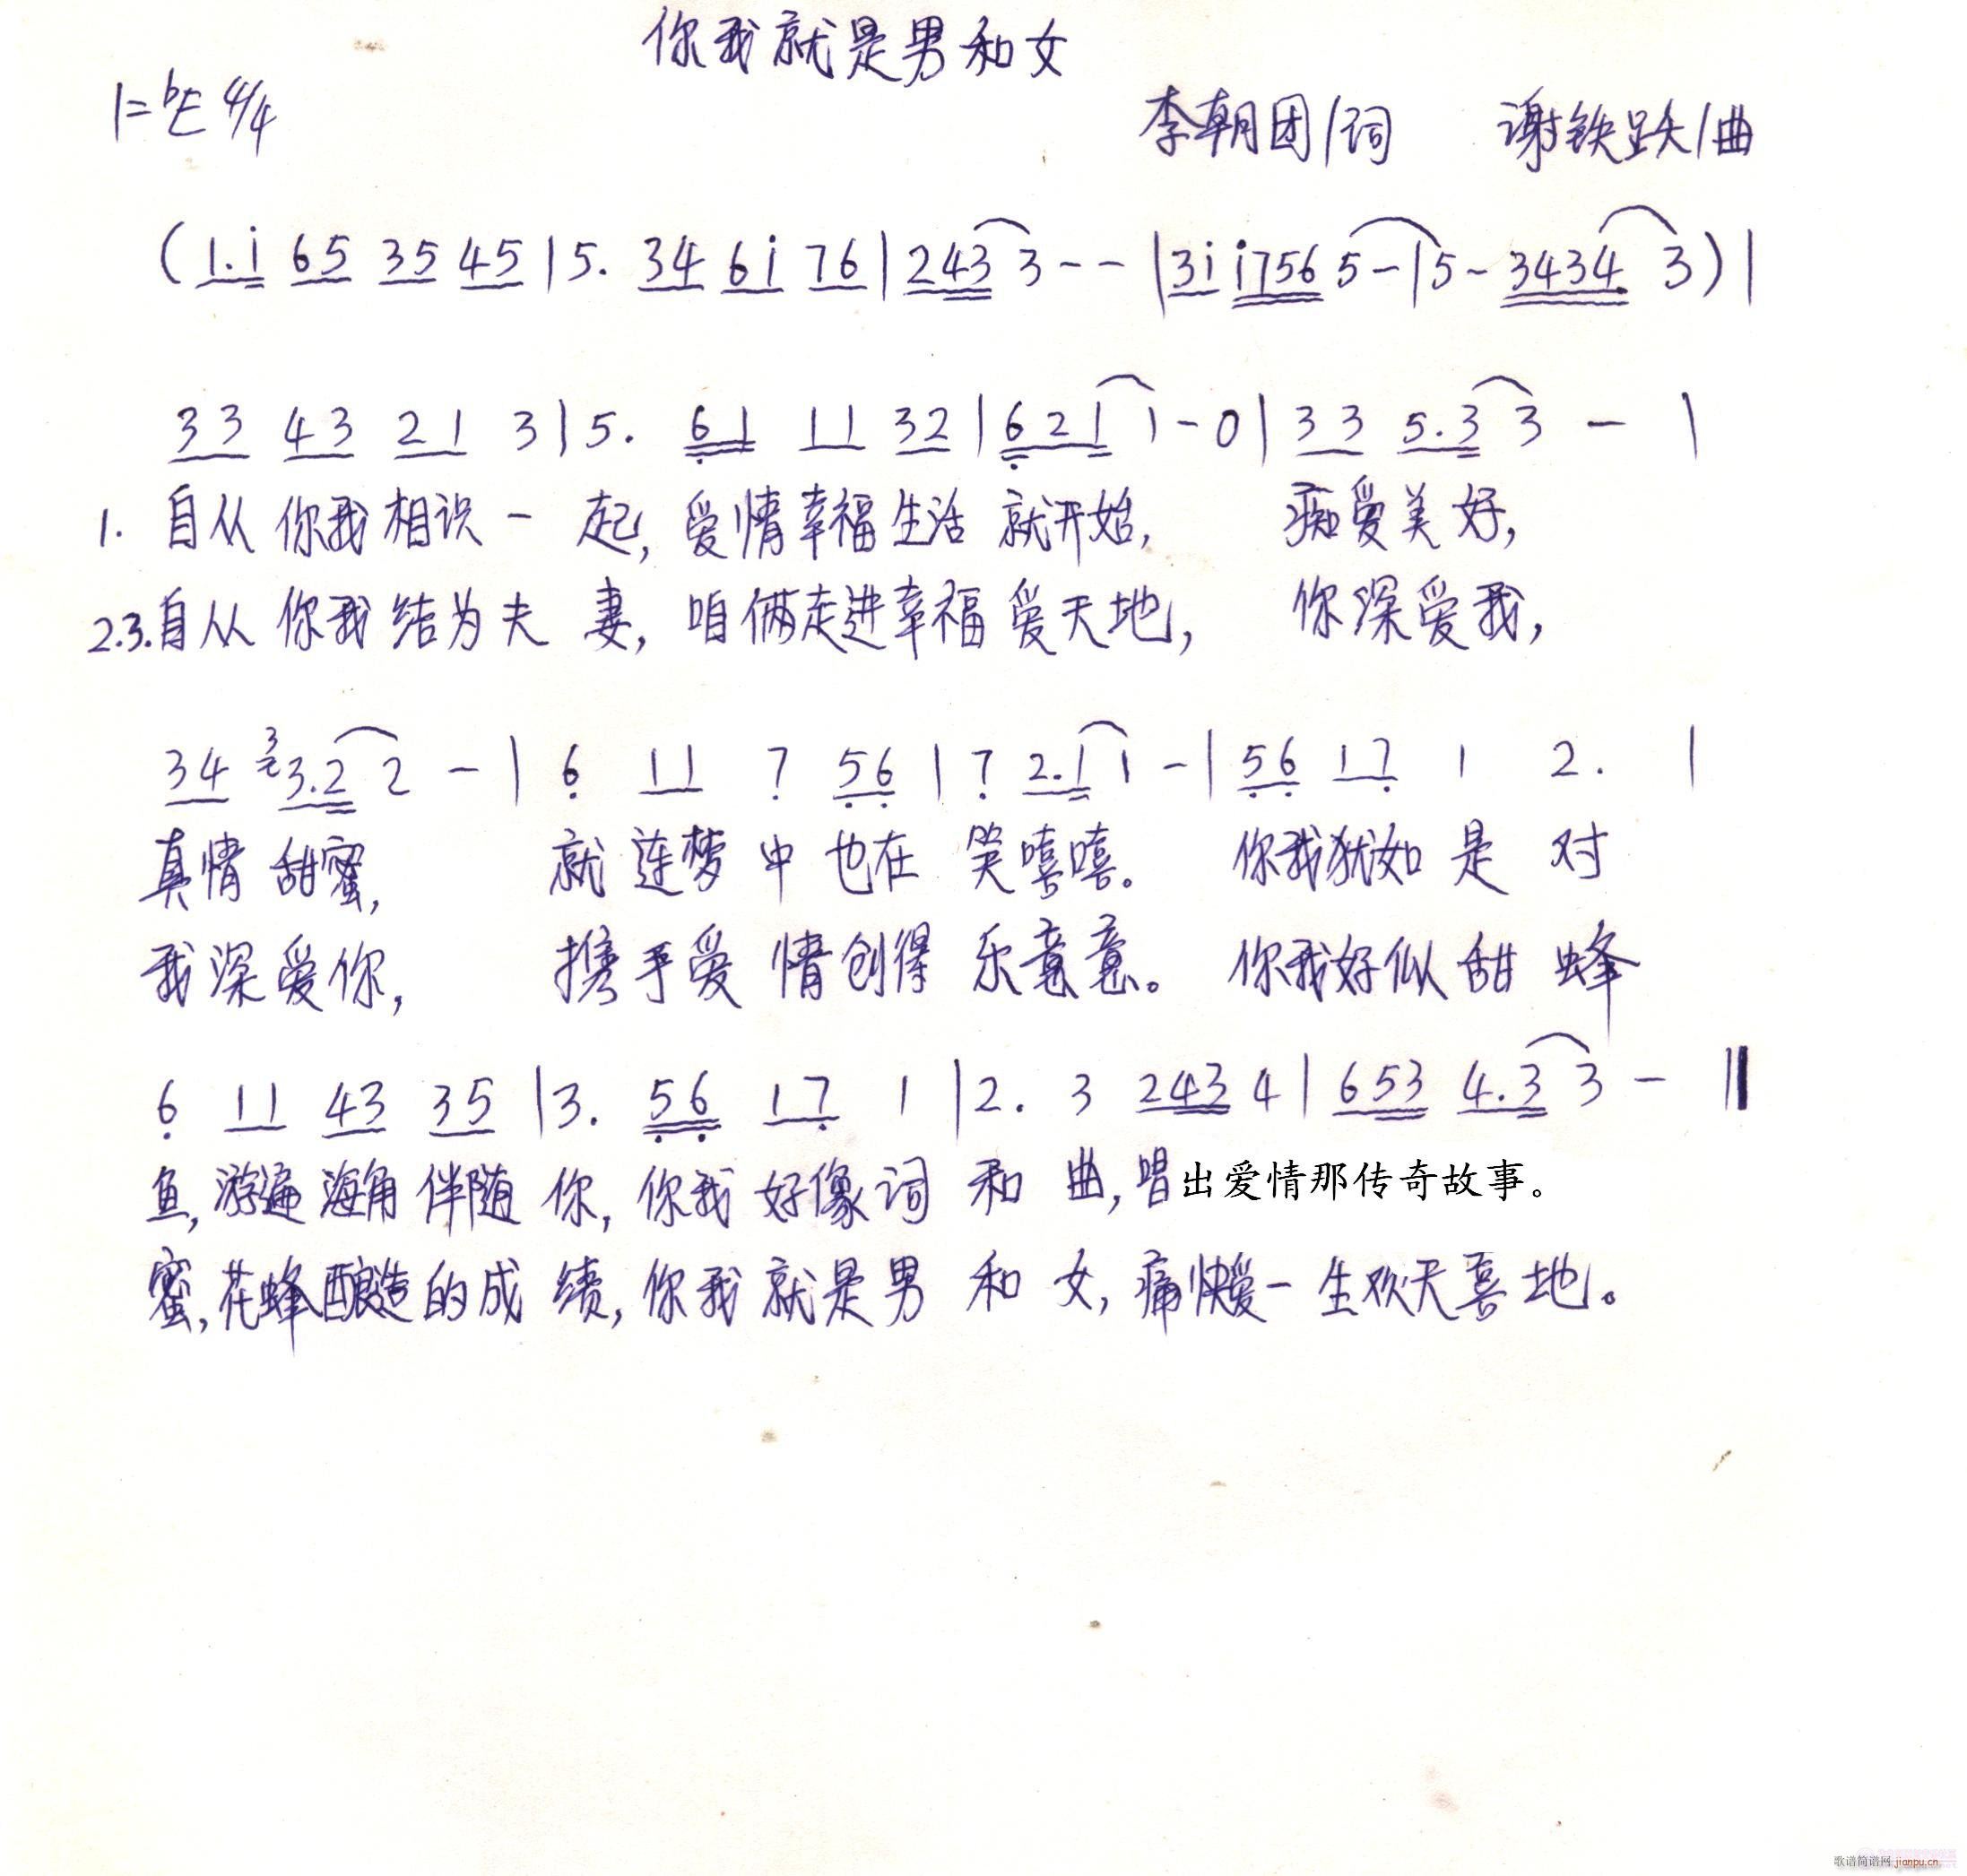 你我就是男和女
1=♭E 4/4
李朝团/词 谢铁跃/曲
(1.i 65 35 45|5. 34 6i 76|243 3--|3i i756 5-|5- 3434. 3)|
33 43 21 3|5. 61 11 32|621 1-0|33 5.3 3 - |
1. 自从你我相识一起,爱情幸福生活就开始, 痴爱美好,
2.3.自从你我结为夫妻,咱俩走进幸福爱天地, 你深爱我,
34 3 3.2 2 -|6 11 7 56|7 2.1 1 -|56 17 1 2. |
真情甜蜜, 就连梦中也在笑嘻嘻。 你我犹如是对
我深爱你, 携手爱情创得乐意意。 你我好似甜蜂
6 11 43 35|3. 56 17 1|2. 3 243 4|653 4.3 3 - ‖
鱼,游遍海角伴随你,你我好像词和曲,唱出爱情那传奇故事。
蜜,花蜂酿造的成绩,你我就是男和女,痛快爱一生欢天喜地。
歌谱简谱网 jianpu.cn